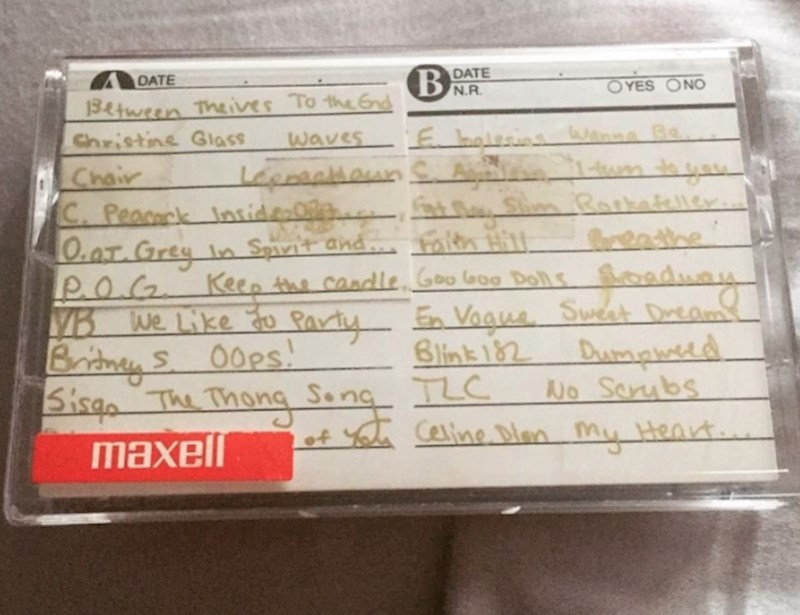 A DATE
Between Theives To the End
Christine Glass Waves
Chair Leprechaun
C. Peacock Inside
O.o.T. Grey In Spirit and...
P.O.G. Keep the candle.
VB We Like To Party
Britney S. OOps!
Sisqo The Thong Song
of You
maxell
B DATE
N.R. YES NO
E. Inglesias Wanna Be...
C. Aguilera I turn to you
Fat Boy Slim Rockafeller...
Faith Hill Breathe
Goo Goo Dolls Broadway
En Vogue Sweet Dreams
Blink 182 Dumpweed
TLC No Scrubs
Celine Dion My Heart...